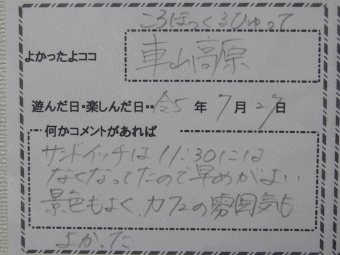 ころぼっくるひゅって
よかったよココ 車山高原
遊んだ日・楽しんだ日・・令5年7月29日
何かコメントがあれば
サンドイッチは11:30には
なくなってたので早めがよい
景色もよく、カフェの雰囲気も
よかった